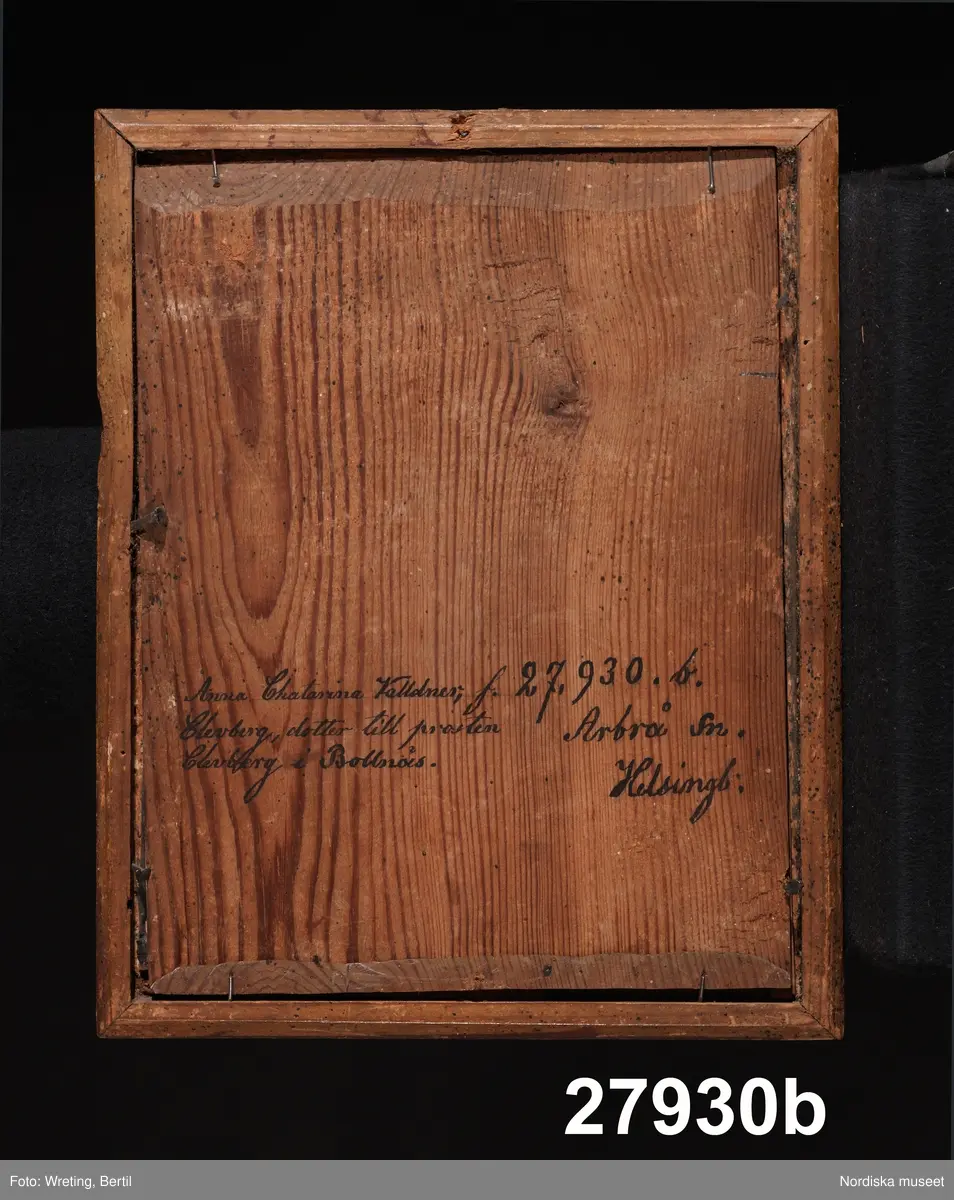 Anna Chatarina Valldner, f.
Clevberg, dotter till prosten
Clevberg i Bollnäs.
27,930. b.
Arbrå Sn.
Helsingl:
27930b
Foto: Wreting, Bertil
Nordiska museet